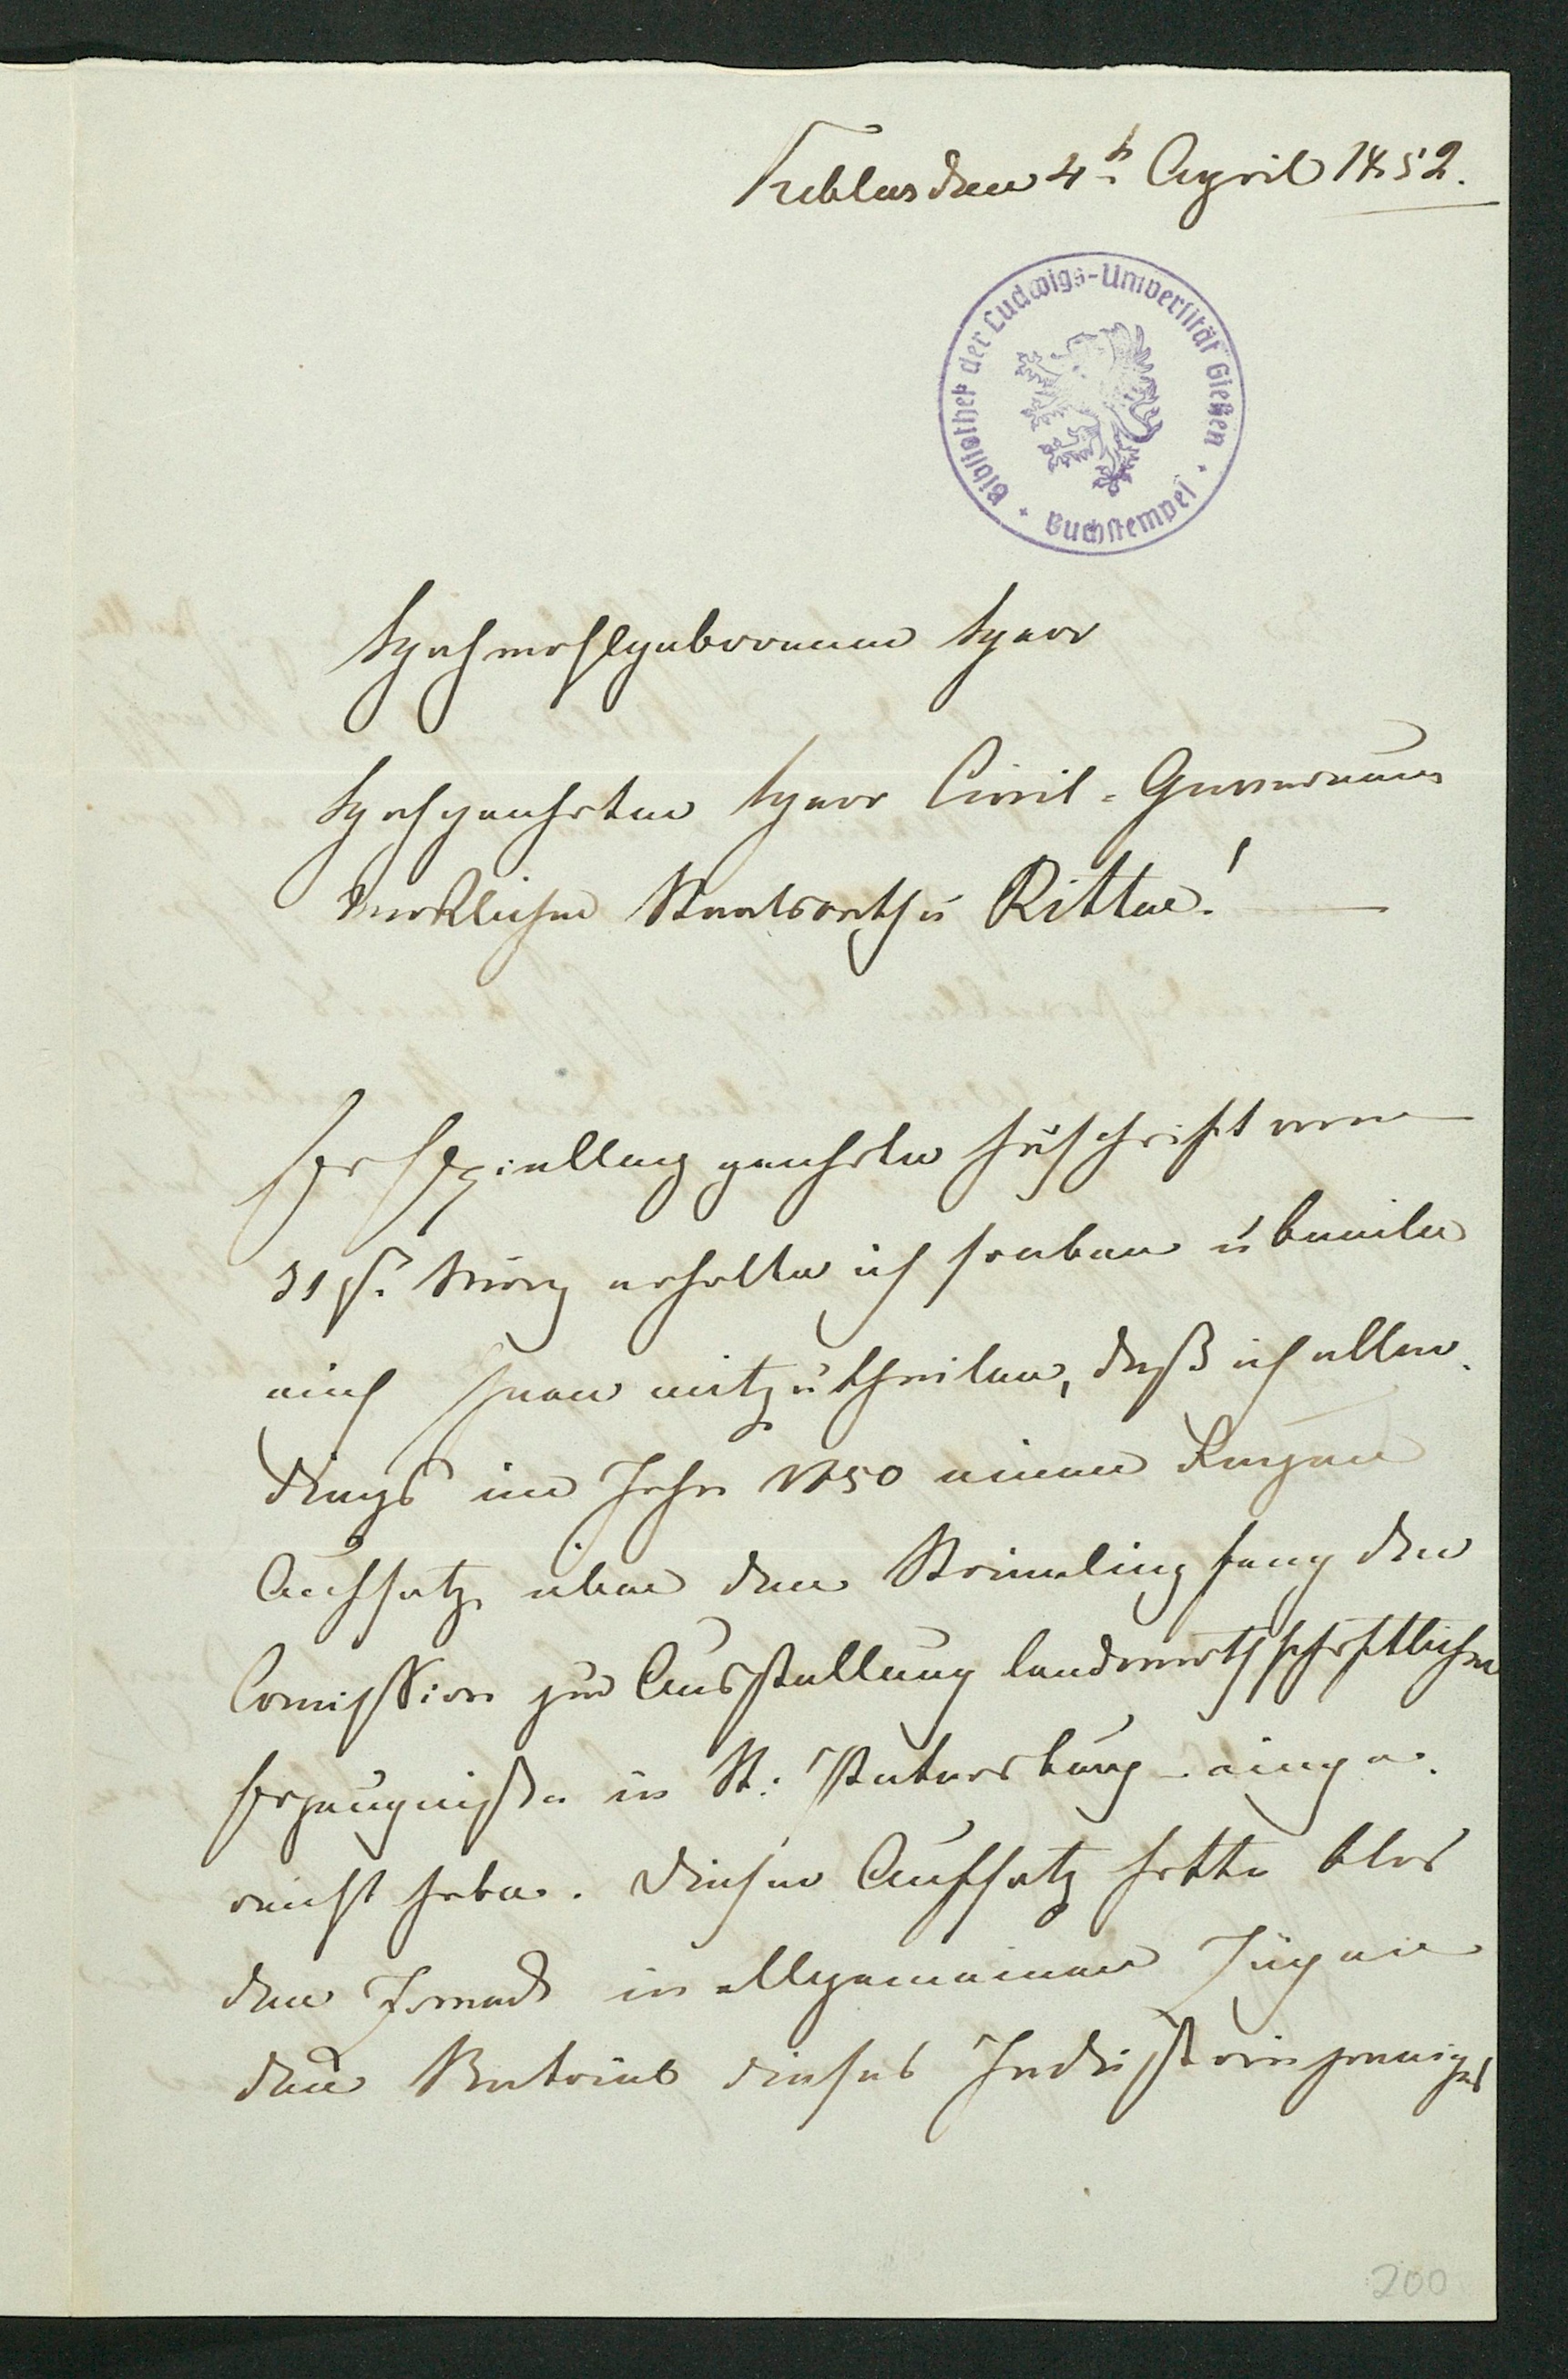 Keblas den 4t April 1852.
Bibliothek der Ludwigs-Universität Gießen
Buchstempel
Hochwohlgeborener Herr
Hochgeehrter Herr Civil-Gouverneur
Wirklicher Staatsrath u Ritter!
Ihr Speciellen geehrte Zuschrift vom
31st. März erhalte ich soeben u beeile
mich Ihnen mitzutheilen, daß ich aller
dings im Jahr 1850 einen kurzen
Aufsatz über den Strömlingsfang der
Comission zur Ausstellung landwirthschaftlicher
Erzeugniße in St. Petersburg einge-
reicht habe. Dieser Aufsatz hatte blos
den Zweck in allgemeinen Zügen
den Betrieb dieses Industriezweiges
200